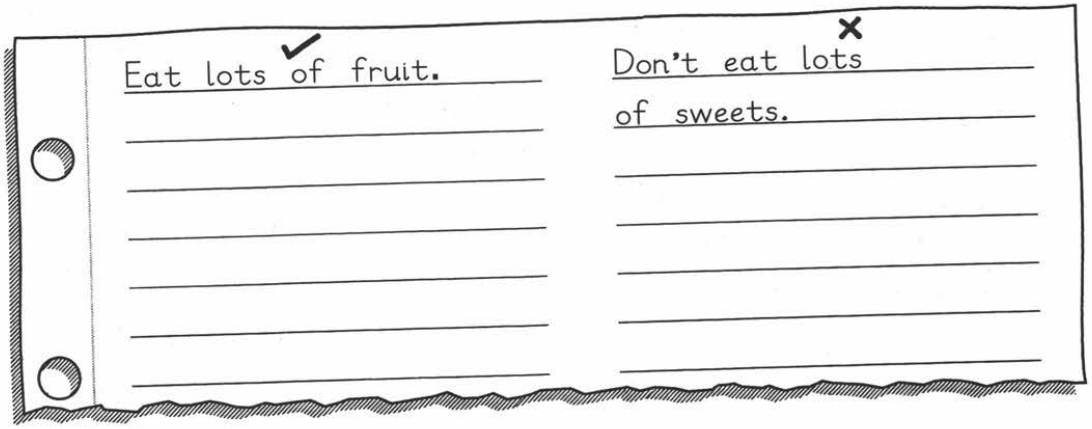 Eat lots of fruit.
Don't eat lots
of sweets.